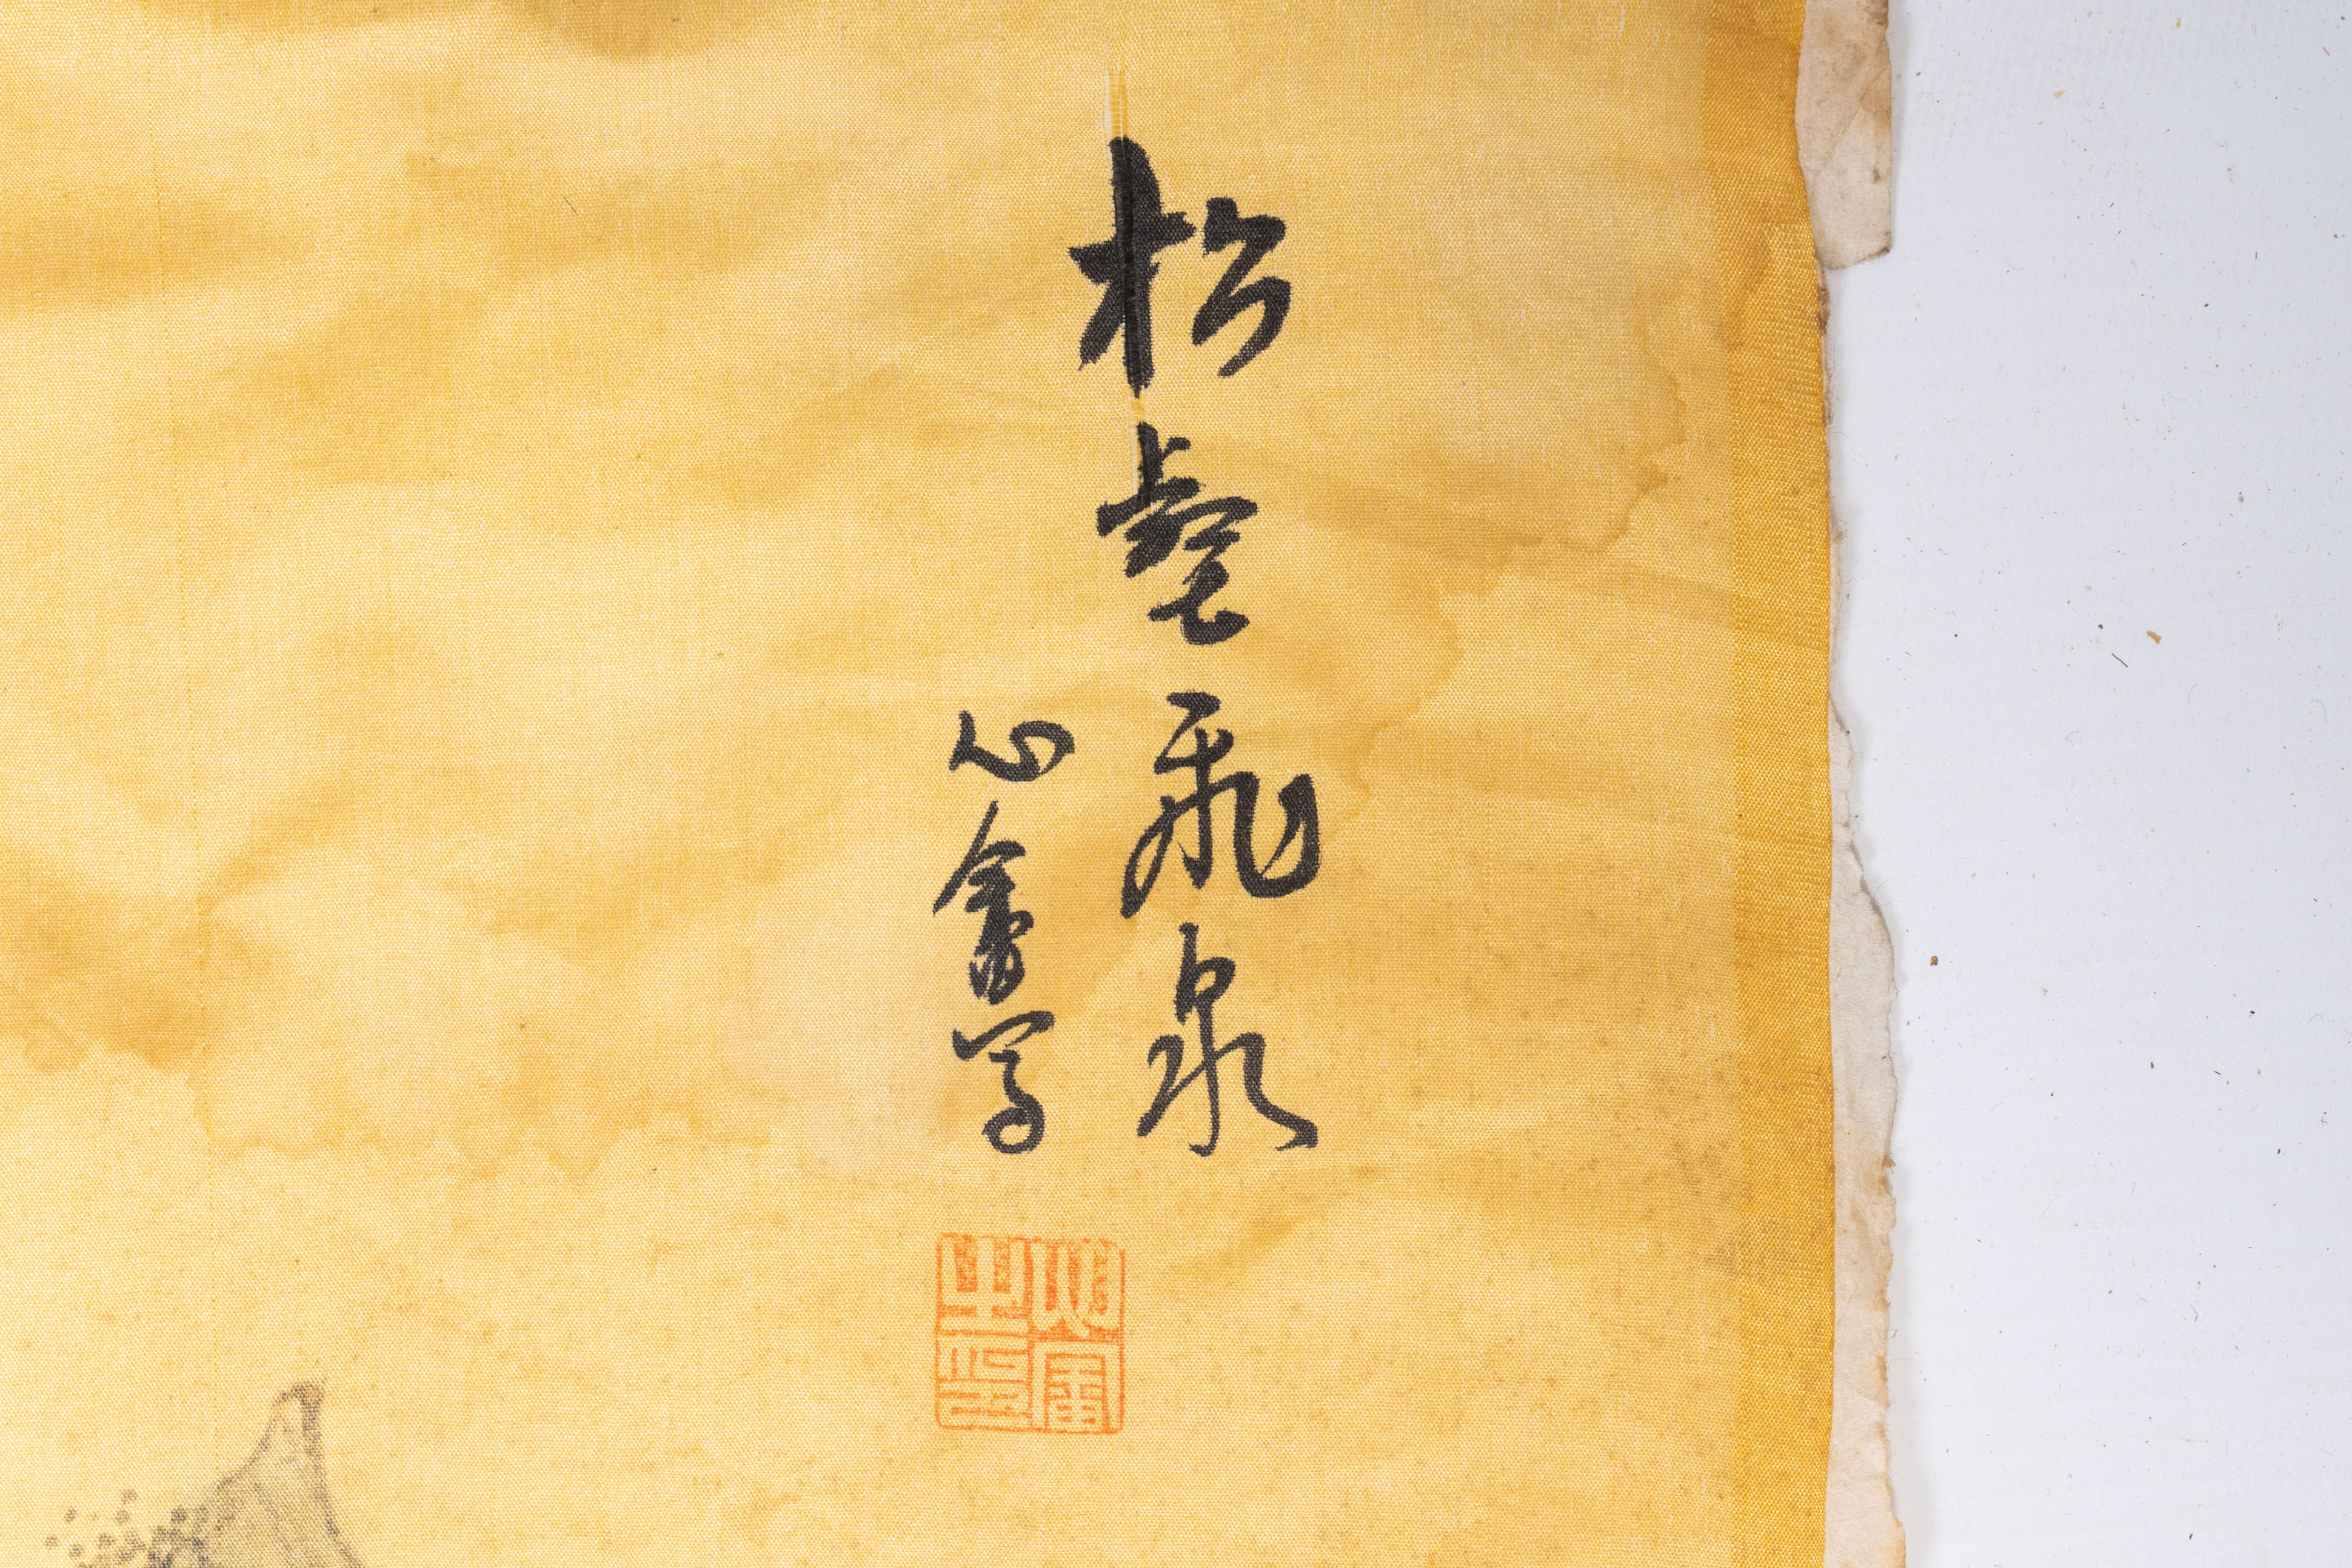 松壑飛泉
心畬写